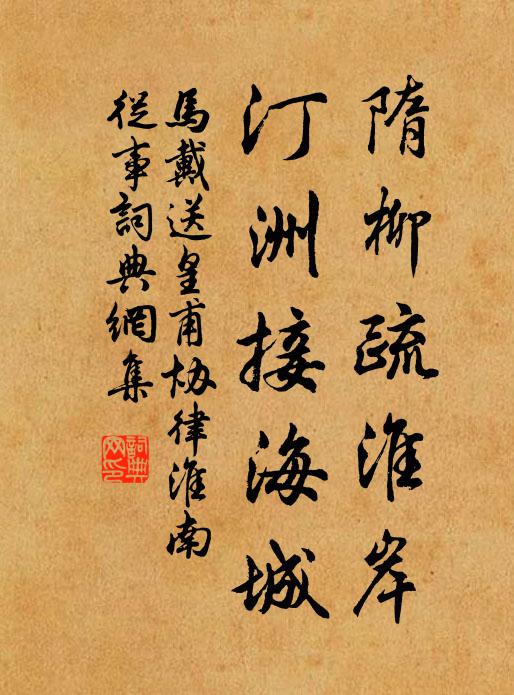 隋柳疏淮岸
汀洲接海城
馬戴送皇甫協律淮南
從事詞典網集
詞典
网印